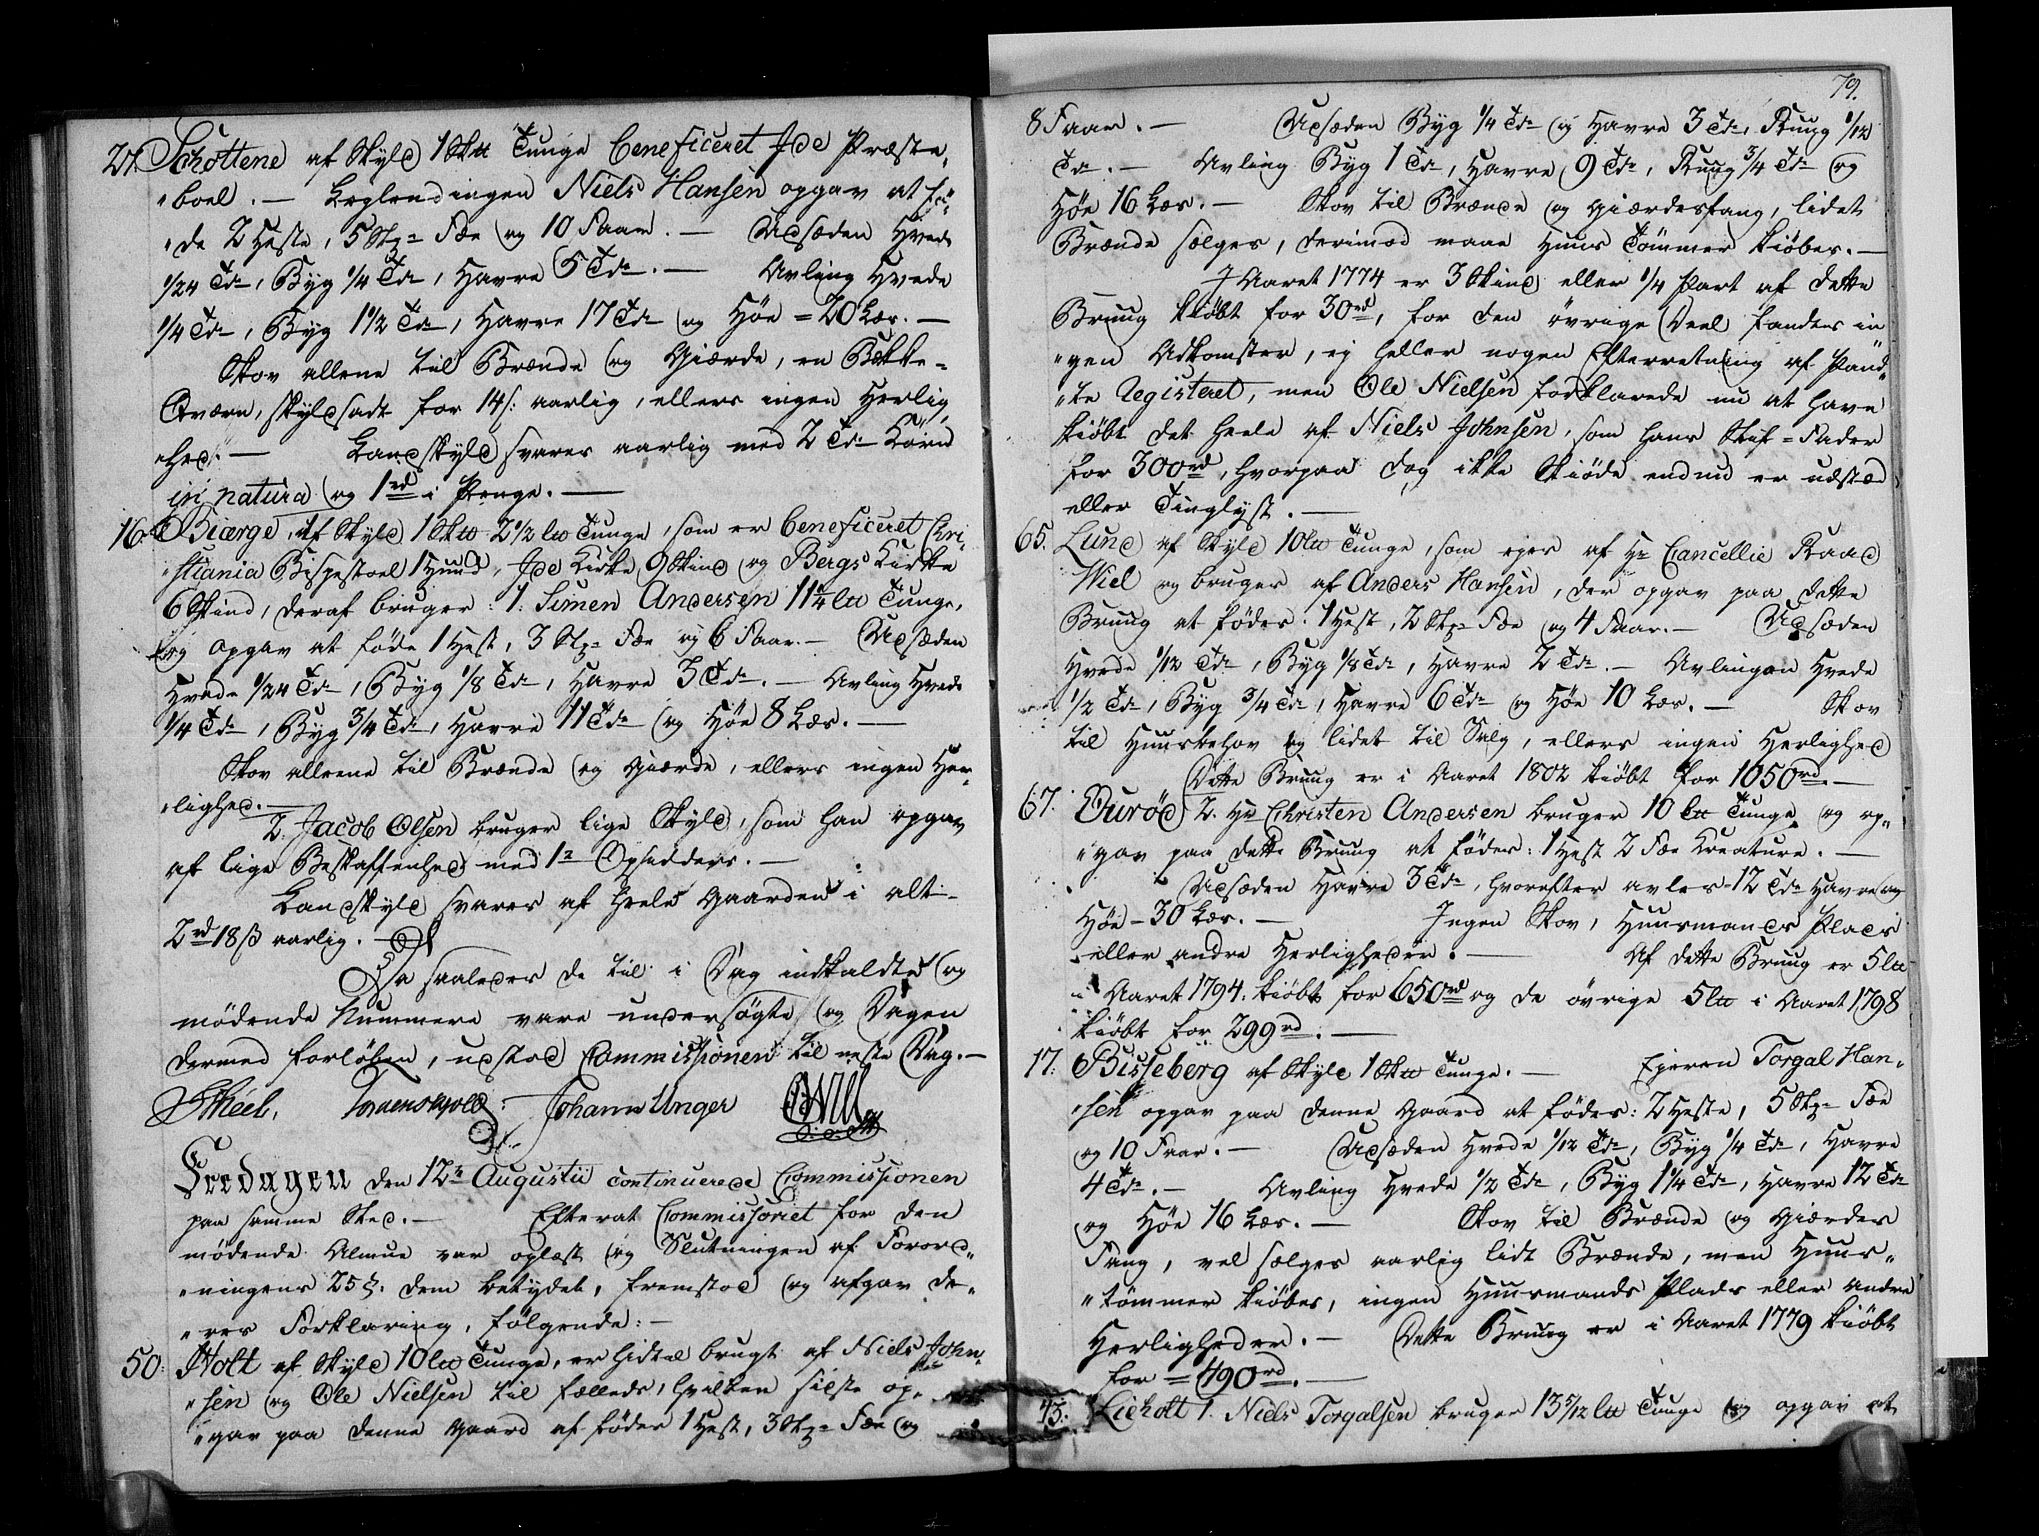 21. Schottene af Skyld 1 Sktt Tunge beneficeret Ide Præste„
„boel. — Leylendingen Niels Hansen opgav at fö„
„de 2 Heste, 5 Stk= Fæe og 10 Faar. — Udsæden Hvede
1/24 Tdr, Byg 1/4 Tdr, Havre 5 Tdr. — Avling Hvede
1/4 Tdr, Byg 1 1/2 Tdr, Havre 17 Tdr og Höe = 20 Læs. —
Skov allene til Brænde og Giærde, en Bekke-
Qværn, skyldsadt for 14 s. aarlig, ellers ingen Herlig„
„hed. — Landskyld svares aarlig med 2 Tdr Korn
in natura og 1 rd i Penge. —
16. Biærge, af Skyld 1 Sktt 2 1/2 ltt Tunge, som er beneficeret Chri„
„stiania Bispestoel 1 Hund, Ide Kirke 9 Skind og Bergs Kirke
6 Skind, deraf bruger: 1. Simen Andersen 11 1/4 ltt Tunge,
og opgav at föde 1 Hest, 3 Stk= Fæe og 6 Faar. — Udsæden
Hvede 1/24 Tdr, Byg 1/8 Tdr, Havre 3 Tdr. — Avling Hvede
1/4 Tdr, Byg 3/4 Tdr, Havre 11 Tdr og Höe 8 Læs. —
Skov alleene til Brænde og Giærde, ellers ingen Her„
„lighed. —
2. Jacob Olsen bruger lige Skyld, som han opgav
af lige Beskaffenhed med 1ste Opsidders. —
Landskyld svares af heele Gaarden i alt
2 rd 18 ß aarlig. —
Da saaledes de til i Dag indkaldte og
mödende Nummere vare undersögte og Dagen
dermed forlöben, udstod Commissionen til neste Dag. —
Skeel. Tordenskjold. Johann Unger OWill
Fredagen den 12te Augustii continuerede Commissionen
paa samme Sted. — Efterat Commissoriet for den
mödende Almue var oplæst og Slutningen af Forord„
„ningens 25 §. dem betydet, fremstod og afgav de„
„res Forklaring, fölgende: —
50: Holt af Skyld 10 ltt Tunge, er hidtil brugt af Niels John„
„sen og Ole Nielsen til fælleds, hvilken sidste op„
„gav paa denne Gaard at födes 1 Hest, 3 Stk= Fæe og
79.
8 Faar. — Udsæden Byg 1/4 Tdr og Havre 3 Tdr, Ruug 1/12
Tdr. — Avling Byg 1 Tdr, Havre 9 Tdr, Ruug 3/4 Tdr og
Höe 16 Læs. — Skov til Brænde og Giærdesfang, lidet
Brænde sælges, derimod maae Huus Tömmer kiöbes. —
I Aaret 1774 er 3 Skind eller 1/4 Part af dette
Bruug kiöbt for 30 rd, for den övrige Deel fandtes in„
„gen Adkomster, ej heller nogen Efterretning af Pand„
„te Registeret, men Ole Nielsen forklarede nu at have
kiöbt det heele af Niels Johnsen, som hans Stif=Fader
for 300 rd, hvorpaa dog ikke Skiöde endnu er udstæd
eller Tinglyst. —
65. Lund af Skyld 10 ltt Tunge, som ejes af Hr Cancellie Raad
Wiel og bruges af Anders Hansen, der opgav paa dette
Bruug at födes: 1 Hest, 2 Stk= Fæe og 4 Faar. — Udsæden
Hvede 1/12 Tdr, Byg 1/8 Tdr, Havre 2 Tdr. — Avlingen Hvede
1/2 Tdr, Byg 3/4 Tdr, Havre 6 Tdr og Höe 10 Læs. — Skov
til Huusbehov og lidet til Salg, ellers ingen Herlighed
Dette Bruug er i Aaret 1802 kiöbt for 1050 rd. —
67. Buröd 2. Hr Christen Andersen bruger 10 ltt Tunge og op„
„gav paa dette Bruug at födes: 1 Hest 2 Fæe Kreature. —
Udsæden Havre 3 Tdr, hvorefter avles = 12 Tdr Havre og
Höe = 30 Læs. — Ingen Skov, Huusmands Plads
eller andre Herligheder. — Af dette Bruug er 5 ltt
i Aaret 1794. kiöbt for 650 rd og de övrige 5 ltt i Aaret 1798
kiöbt for 299 rd. —
17: Bisseberg af Skyld 1 Sktt Tunge. — Ejeren Torgal Han„
„sen opgav paa denne Gaard at födes: 2 Heste, 5 Stk= Fæe
og 10 Faar. — Udsæden Hvede 1/12 Tdr, Byg 1/4 Tdr, Havre
4 Tdr. — Avling Hvede 1/2 Tdr, Byg 1 1/4 Tdr, Havre 12 Tdr
og Höe 16 Læs. — Skov til Brænde og Giærdes
Fang, vel sælges aarlig lidt Brænde, men Huus„
„tömmer kiöbes, ingen Huusmands Plads eller andre
Herligheder. — Dette Bruug er i Aaret 1779 kiöbt
for = 490 rd. —
43: Lieholt 1. Niels Torgalsen bruger 13 5/12 ltt Tunge og opgav at